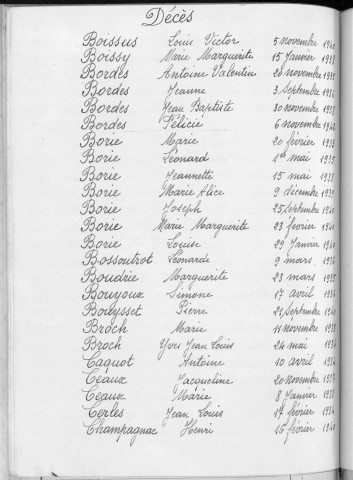 Décès
Boissus Louis Victor 5 novembre 1940
Boissy Marie Marguerite 15 Janvier 1938
Bordes Antoine Valentin 26 novembre 1935
Bordes Jeanne 3 Septembre 1936
Bordes Jean Baptiste 30 novembre 1938
Bordes Félicie 6 novembre 1940
Borie Marie 20 février 1933
Borie Léonard 1er mai 1935
Borie Jeannette 15 mai 1938
Borie Marie Alice 9 décembre 1939
Borie Joseph 25 Septembre 1940
Borie Marie Marguerite 23 février 1940
Borie Louise 29 Janvier 1940
Bossoutrot Léonarde 9 mars 1936
Boudrie Marguerite 23 mars 1935
Bouyoux Simone 17 avril 1936
Bouysset Pierre 21 Septembre 1940
Broch Marie 11 novembre 1938
Broch Yves Jean Louis 24 mai 1934
Caquot Antoine 10 avril 1934
Céaux Jacqueline 20 novembre 1937
Céaux Marie 8 Janvier 1938
Cerles Jean Louis 17 février 1934
Champagnac Henri 16 février 1940